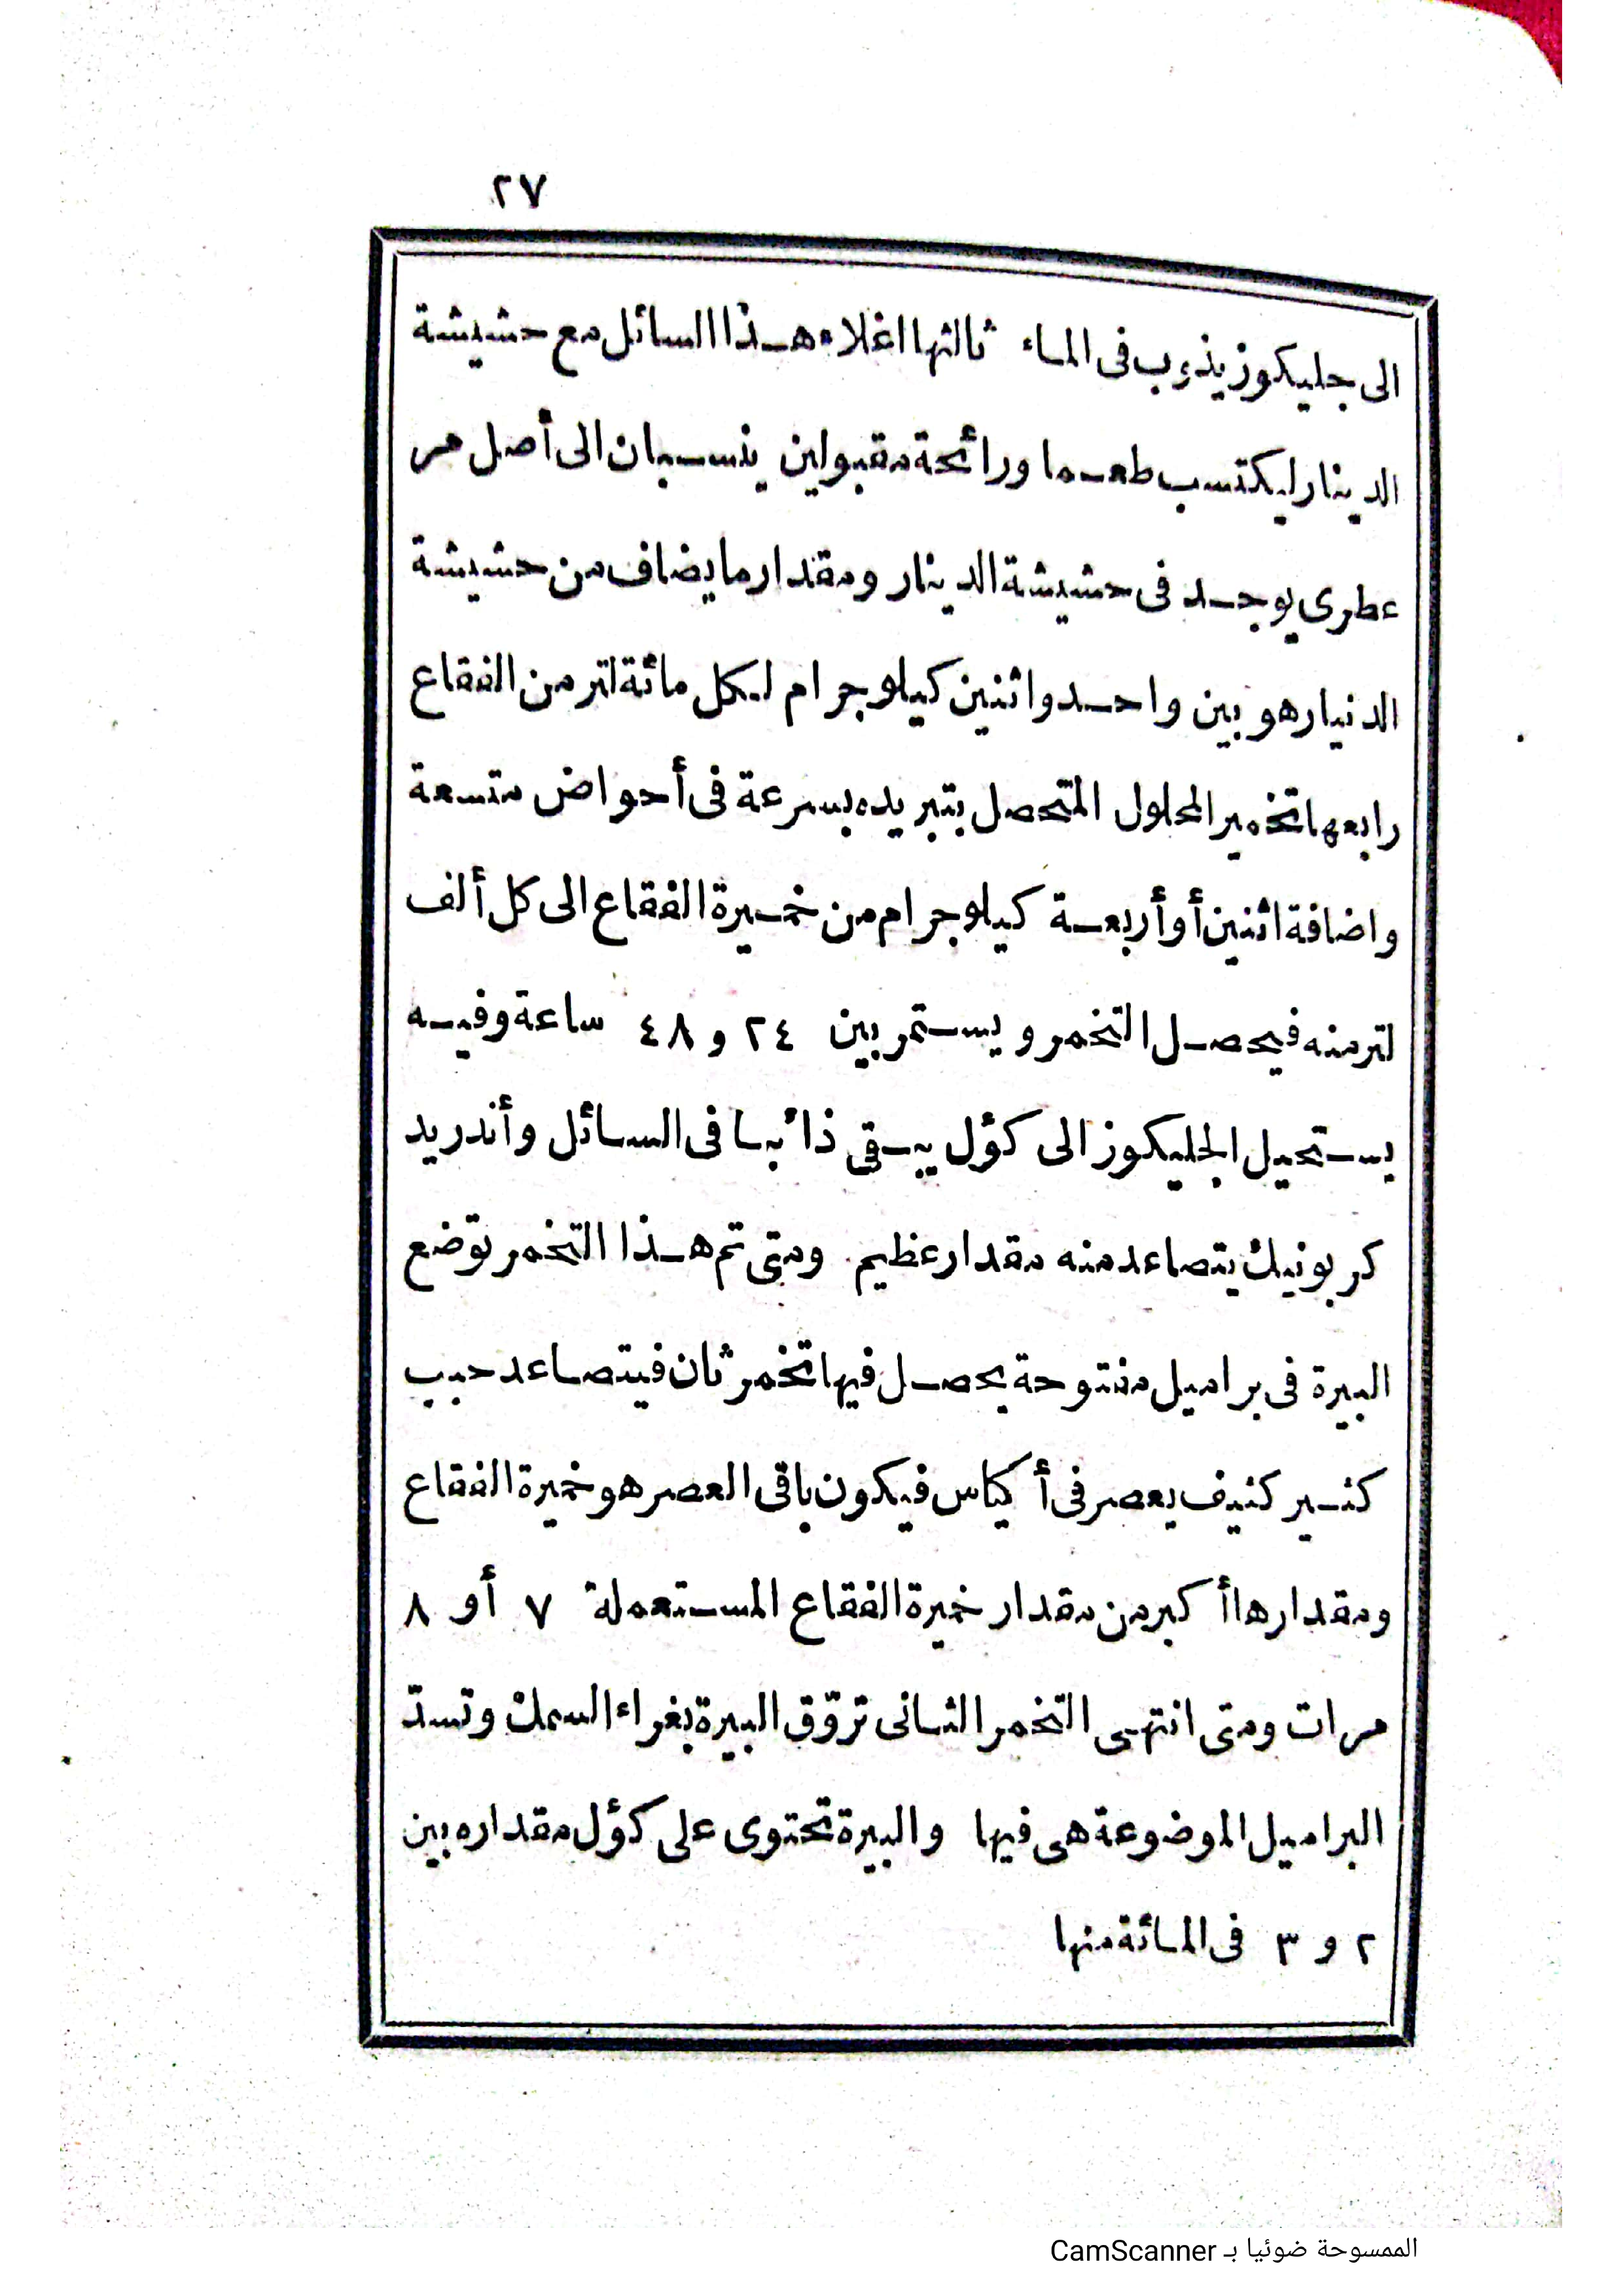 ٢٧
الى جليكوز يذوب فى الماء ثالثها اغلاء هذا السائل مع حشيشة
الدينار ليكتسب طعما ورائحة مقبولين ينسبان الى أصل مر
عطرى يوجد فى حشيشة الدينار ومقدار ما يضاف من حشيشة
الدنيار هو بين واحد واثنين كيلو جرام لكل مائة لتر من الفقاع
رابعها تخمير المحلول المتحصل بتبريده بسرعة فى أحواض متسعة
واضافة اثنين أو أربعة كيلو جرام من خميرة الفقاع الى كل ألف
لتر منه فيحصل التخمر ويستمر بين ٢٤ و ٤٨ ساعة وفيه
يستحيل الجليكوز الى كؤل يبقى ذائبا فى السائل وأندريد
كربونيك يتصاعد منه مقدار عظيم ومتى تم هذا التخمر توضع
البيرة فى براميل مفتوحة يحصل فيها تخمر ثان فيتصاعد حبب
كثير كثيف يعصر فى أكياس فيكون باقى العصر هو خميرة الفقاع
ومقدارها أكبر من مقدار خميرة الفقاع المستعملة ٧ أو ٨
مرات ومتى انتهى التخمر الثانى تروّق البيرة بغراء السمك وتسدّ
البراميل الموضوعة هى فيها والبيرة تحتوى على كؤل مقداره بين
٢ و ٣ فى المائة منها
الممسوحة ضوئيا بـ CamScanner